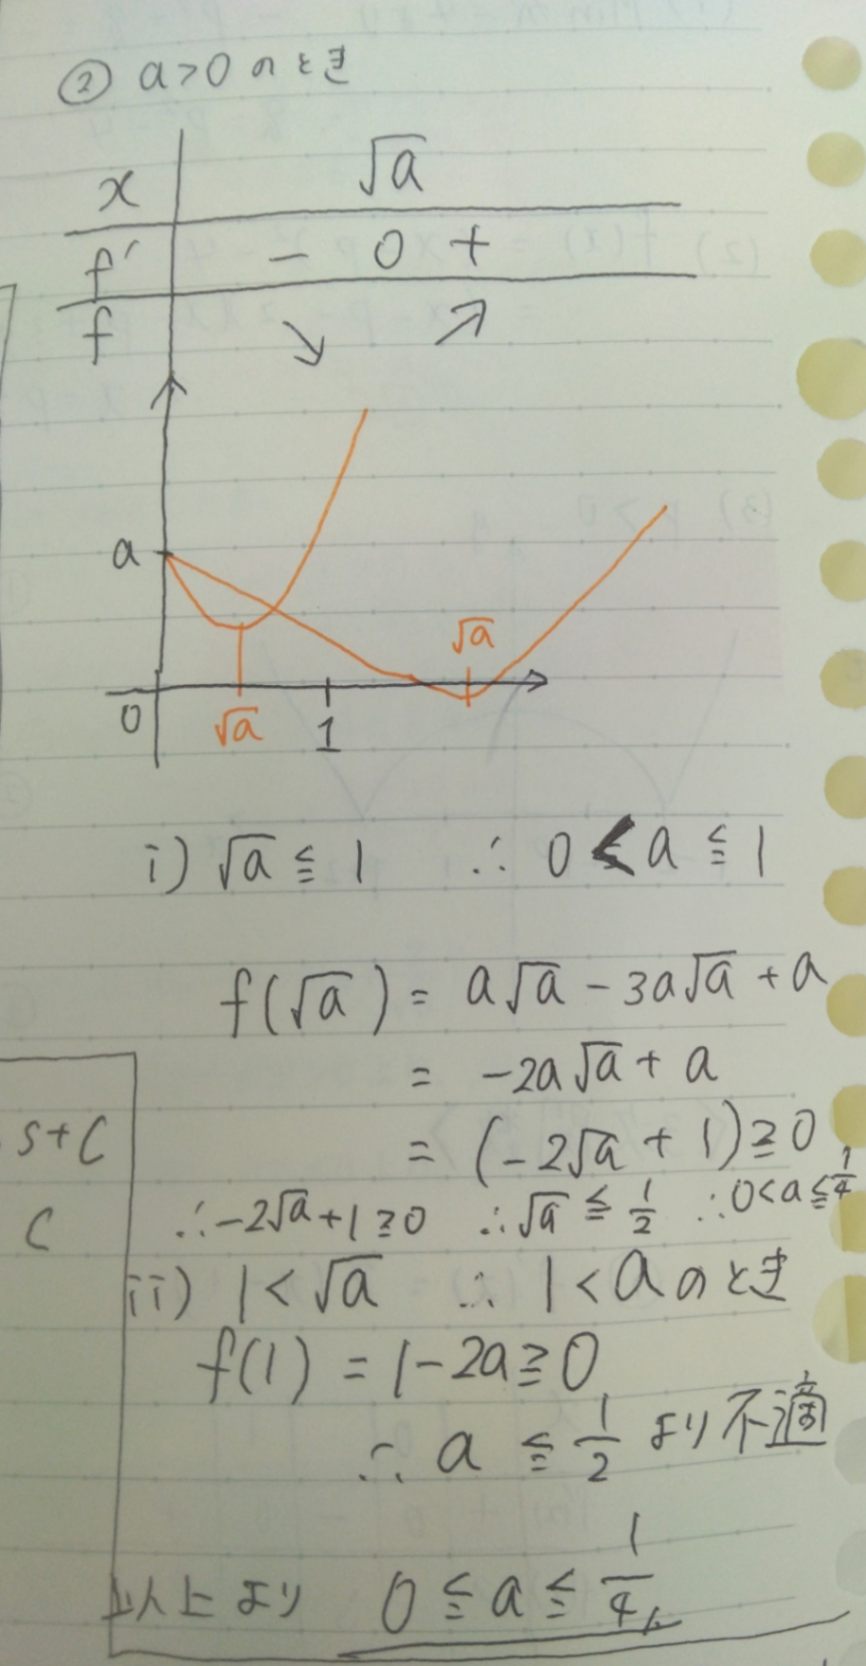 ② a>0 のとき
x √a
f′ − 0 +
f ↘ ↗
a
√a
0 √a 1
i) √a ≦ 1 ∴ 0 < a ≦ 1
f(√a) = a√a − 3a√a + a
= −2a√a + a
= (−2√a + 1) ≧ 0
S+C
∴ −2√a+1 ≧ 0 ∴ √a ≦ 1/2 ∴ 0<a≦1/4
C
ii) 1 < √a ∴ 1 < a のとき
f(1) = 1−2a ≧ 0
∴ a ≦ 1/2 より 不適
以上より 0 ≦ a ≦ 1/4